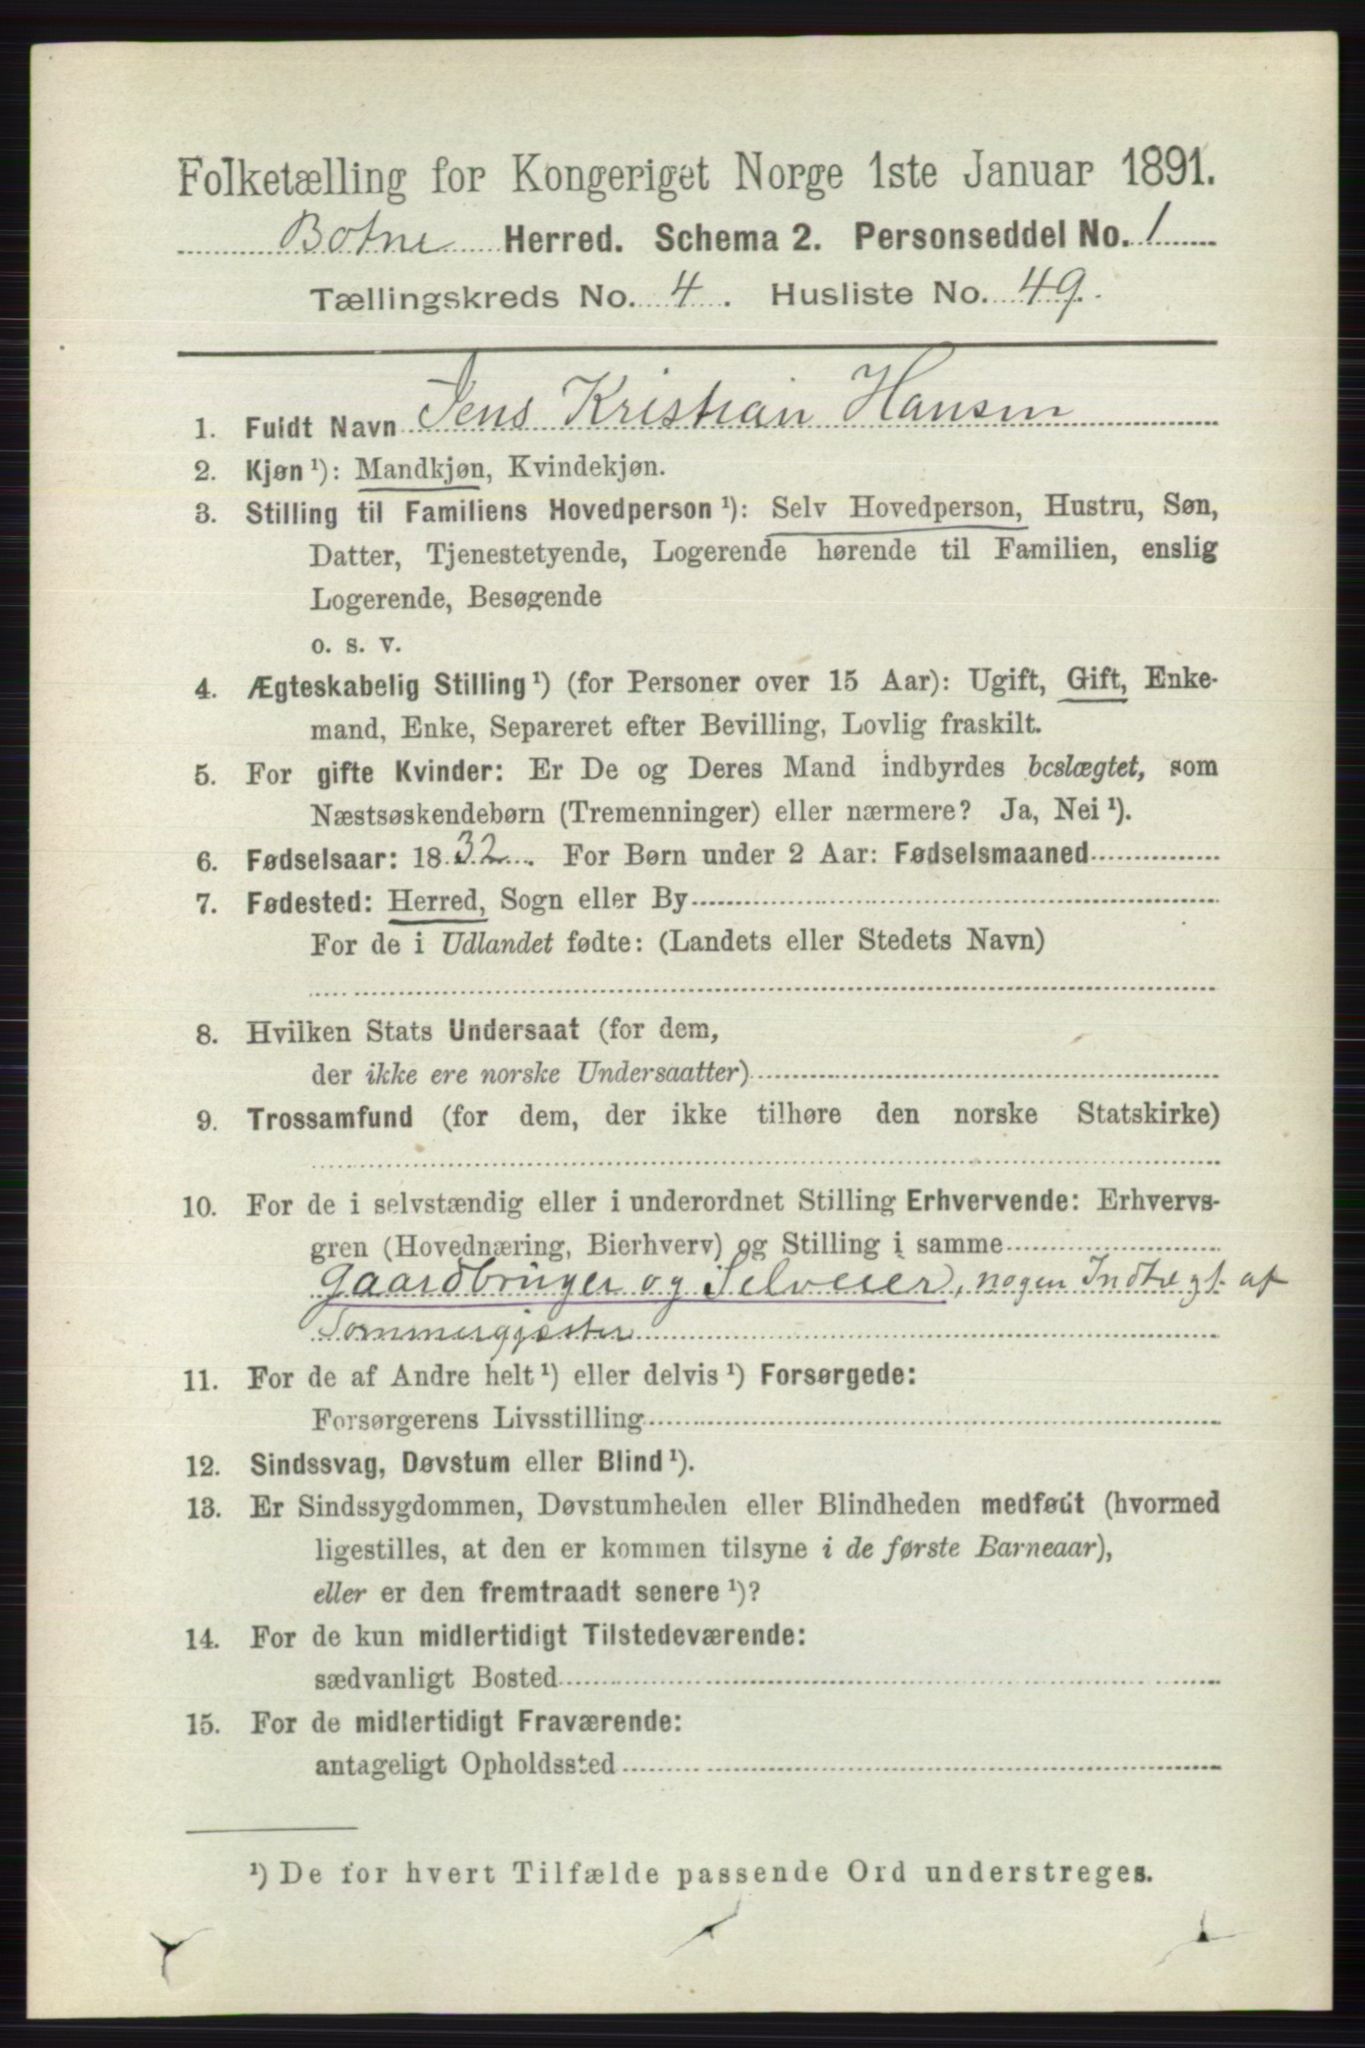 Folketælling for Kongeriget Norge 1ste Januar 1891.
Botne Herred. Schema 2. Personseddel No. 1
Tællingskreds No. 4. Husliste No. 49.
1. Fuldt Navn Jens Kristian Hansen
2. Kjøn ¹): Mandkjøn, Kvindekjøn.
3. Stilling til Familiens Hovedperson ¹): Selv Hovedperson, Hustru, Søn,
Datter, Tjenestetyende, Logerende hørende til Familien, enslig
Logerende, Besøgende
o. s. v.
4. Ægteskabelig Stilling ¹) (for Personer over 15 Aar): Ugift, Gift, Enke-
mand, Enke, Separeret efter Bevilling, Lovlig fraskilt.
5. For gifte Kvinder: Er De og Deres Mand indbyrdes beslægtet, som
Næstsøskendebørn (Tremenninger) eller nærmere? Ja, Nei ¹).
6. Fødselsaar: 1832. For Børn under 2 Aar: Fødselsmaaned
7. Fødested: Herred, Sogn eller By
For de i Udlandet fødte: (Landets eller Stedets Navn)
8. Hvilken Stats Undersaat (for dem,
der ikke ere norske Undersaatter)
9. Trossamfund (for dem, der ikke tilhøre den norske Statskirke)
10. For de i selvstændig eller i underordnet Stilling Erhvervende: Erhvervs-
gren (Hovednæring, Bierhverv) og Stilling i samme
Gaardbruger og Selveier, nogen Indtægt af
Sommergjæster
11. For de af Andre helt ¹) eller delvis ¹) Forsørgede:
Forsørgerens Livsstilling
12. Sindssvag, Døvstum eller Blind ¹).
13. Er Sindssygdommen, Døvstumheden eller Blindheden medfødt (hvormed
ligestilles, at den er kommen tilsyne i de første Barneaar),
eller er den fremtraadt senere ¹)?
14. For de kun midlertidigt Tilstedeværende:
sædvanligt Bosted
15. For de midlertidigt Fraværende:
antageligt Opholdssted
¹) De for hvert Tilfælde passende Ord understreges.